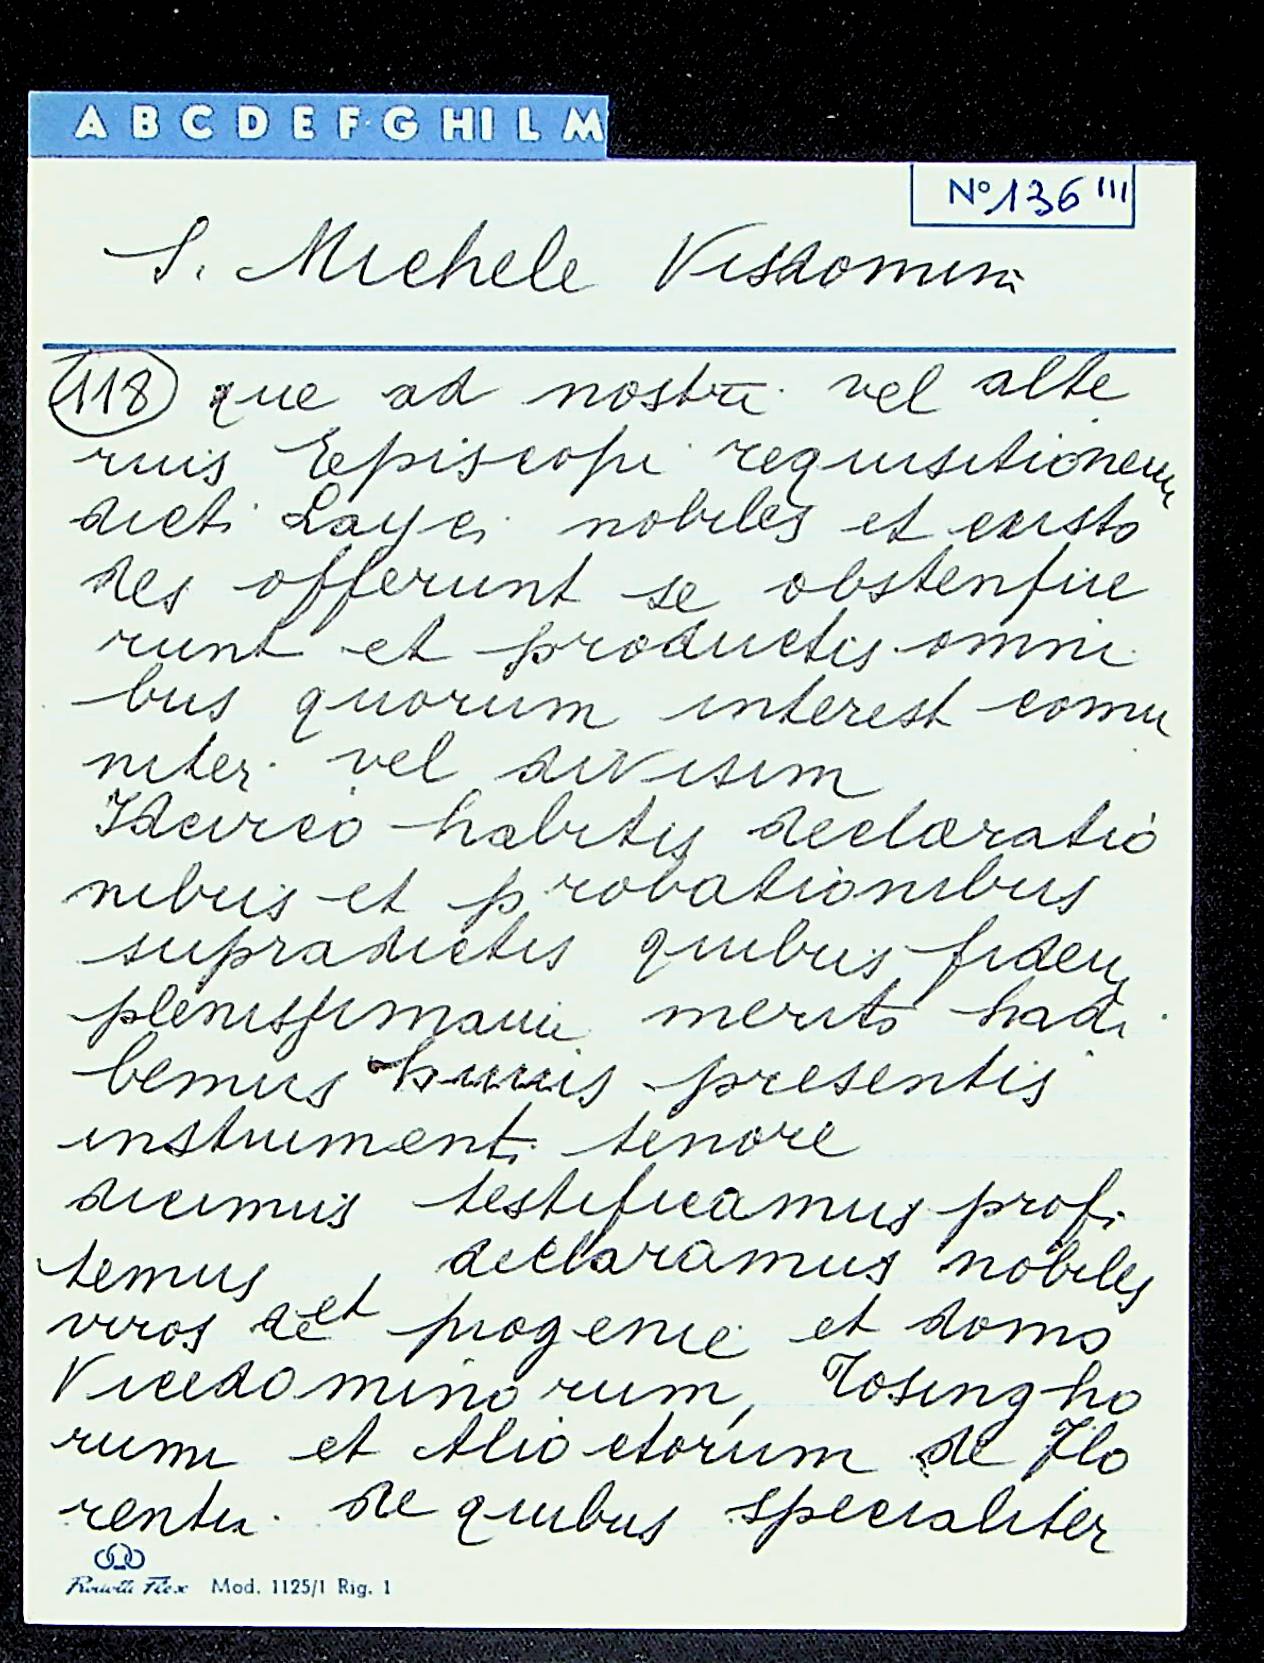 A B C D E F G H I L M
N° 136 III
S. Michele Visdomini
118 que ad nostrū vel alte
rius Episcopi requisitionem
dicti Layci nobiles et custo
des offerunt se obstenfue
runt et productis omni
bus quorum interest comu
niter vel divisim
Idcirco habitis declaratio
nibus et probationibus
supradictis quibus fidem
plenissimam merito hadi
bemus huius presentis
instrumenti tenore
dicimus testificamus profi
temus, declaramus nobiles
viros de et progenie et domo
Vicedominorum, Tosingho
rum et Alioctorum de Flo
rentia de quibus specialiter
Mod. 1125/1 Rig. 1